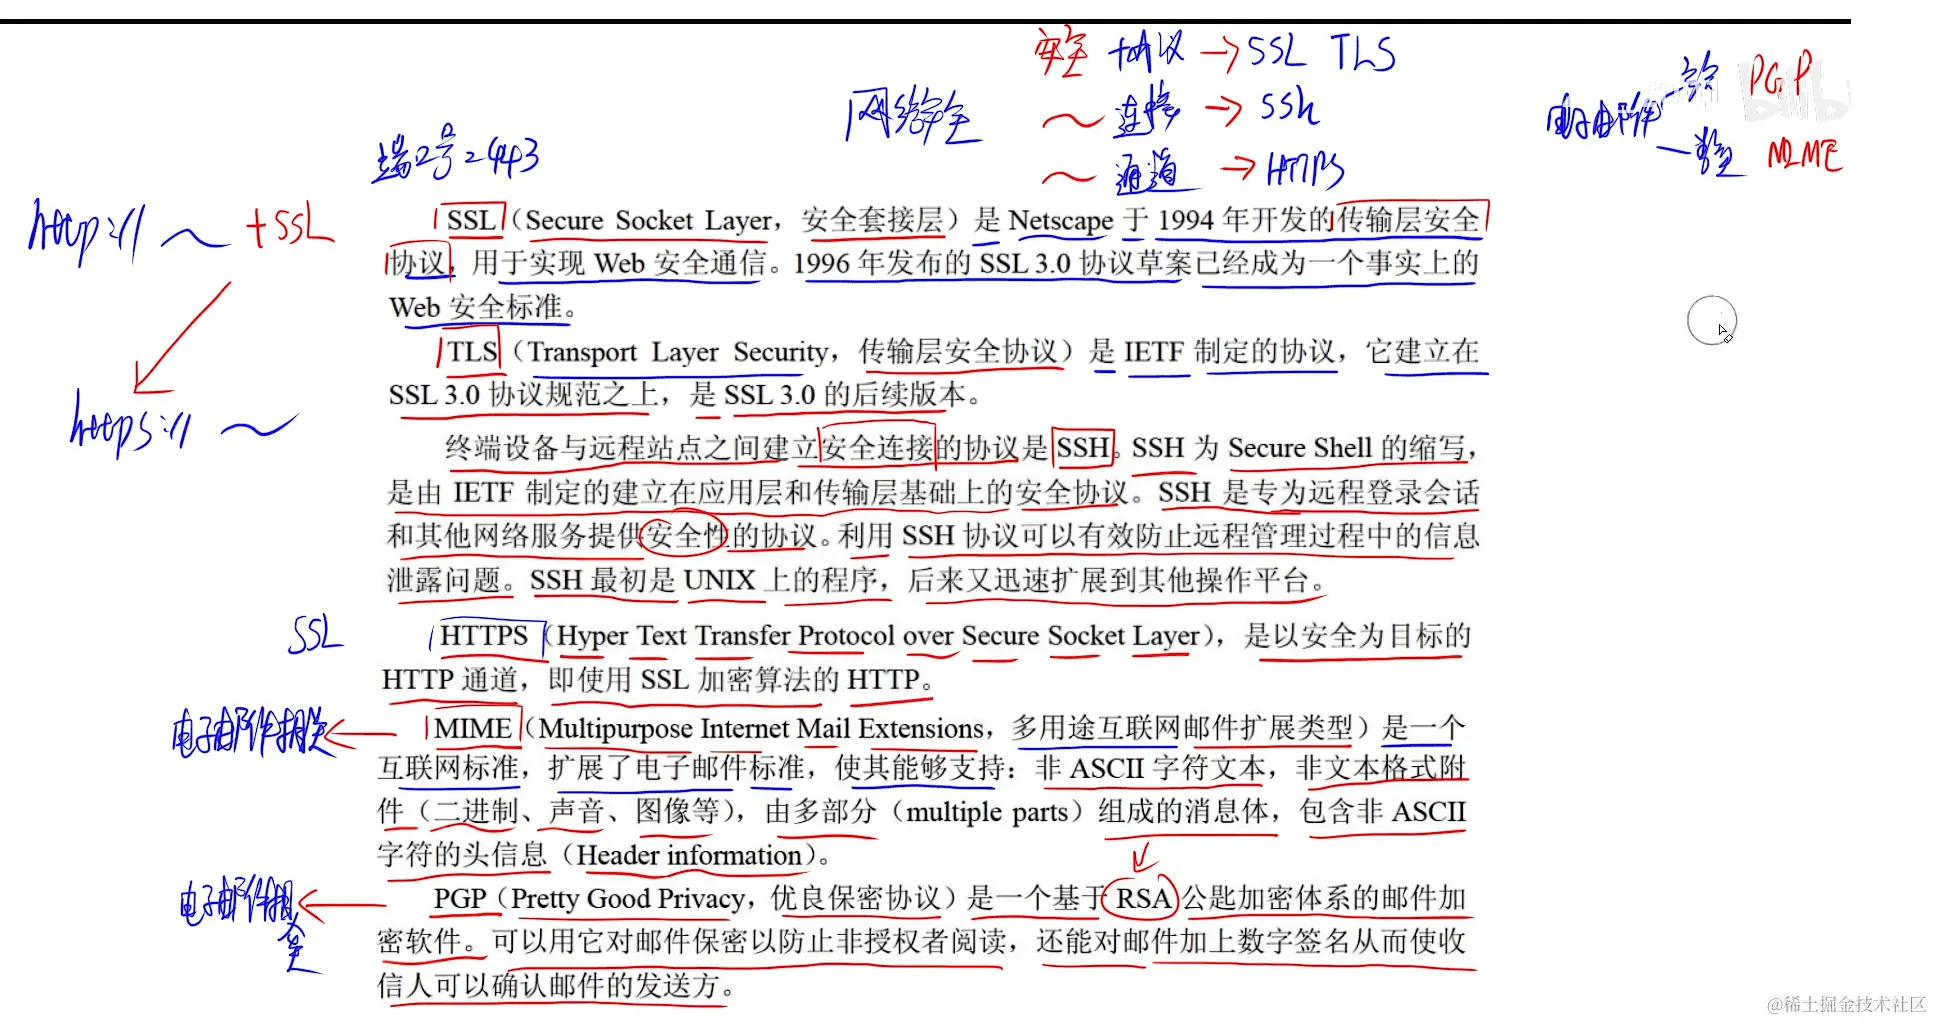 安全 协议 → SSL TLS
网络安全 ~ 连接 → SSh
~ 通道 → HTTPS
电子邮件 安全 PGP
MIME
端口号=443
http:// ~ +SSL
https:// ~
SSL（Secure Socket Layer，安全套接层）是 Netscape 于 1994 年开发的传输层安全
协议，用于实现 Web 安全通信。1996 年发布的 SSL 3.0 协议草案已经成为一个事实上的
Web 安全标准。
TLS（Transport Layer Security，传输层安全协议）是 IETF 制定的协议，它建立在
SSL 3.0 协议规范之上，是 SSL 3.0 的后续版本。
终端设备与远程站点之间建立安全连接的协议是 SSH。SSH 为 Secure Shell 的缩写，
是由 IETF 制定的建立在应用层和传输层基础上的安全协议。SSH 是专为远程登录会话
和其他网络服务提供安全性的协议。利用 SSH 协议可以有效防止远程管理过程中的信息
泄露问题。SSH 最初是 UNIX 上的程序，后来又迅速扩展到其他操作平台。
SSL
HTTPS（Hyper Text Transfer Protocol over Secure Socket Layer），是以安全为目标的
HTTP 通道，即使用 SSL 加密算法的 HTTP。
电子邮件相关
MIME（Multipurpose Internet Mail Extensions，多用途互联网邮件扩展类型）是一个
互联网标准，扩展了电子邮件标准，使其能够支持：非 ASCII 字符文本，非文本格式附
件（二进制、声音、图像等），由多部分（multiple parts）组成的消息体，包含非 ASCII
字符的头信息（Header information）。
电子邮件相关
PGP（Pretty Good Privacy，优良保密协议）是一个基于 RSA 公匙加密体系的邮件加
密软件。可以用它对邮件保密以防止非授权者阅读，还能对邮件加上数字签名从而使收
信人可以确认邮件的发送方。
@稀土掘金技术社区